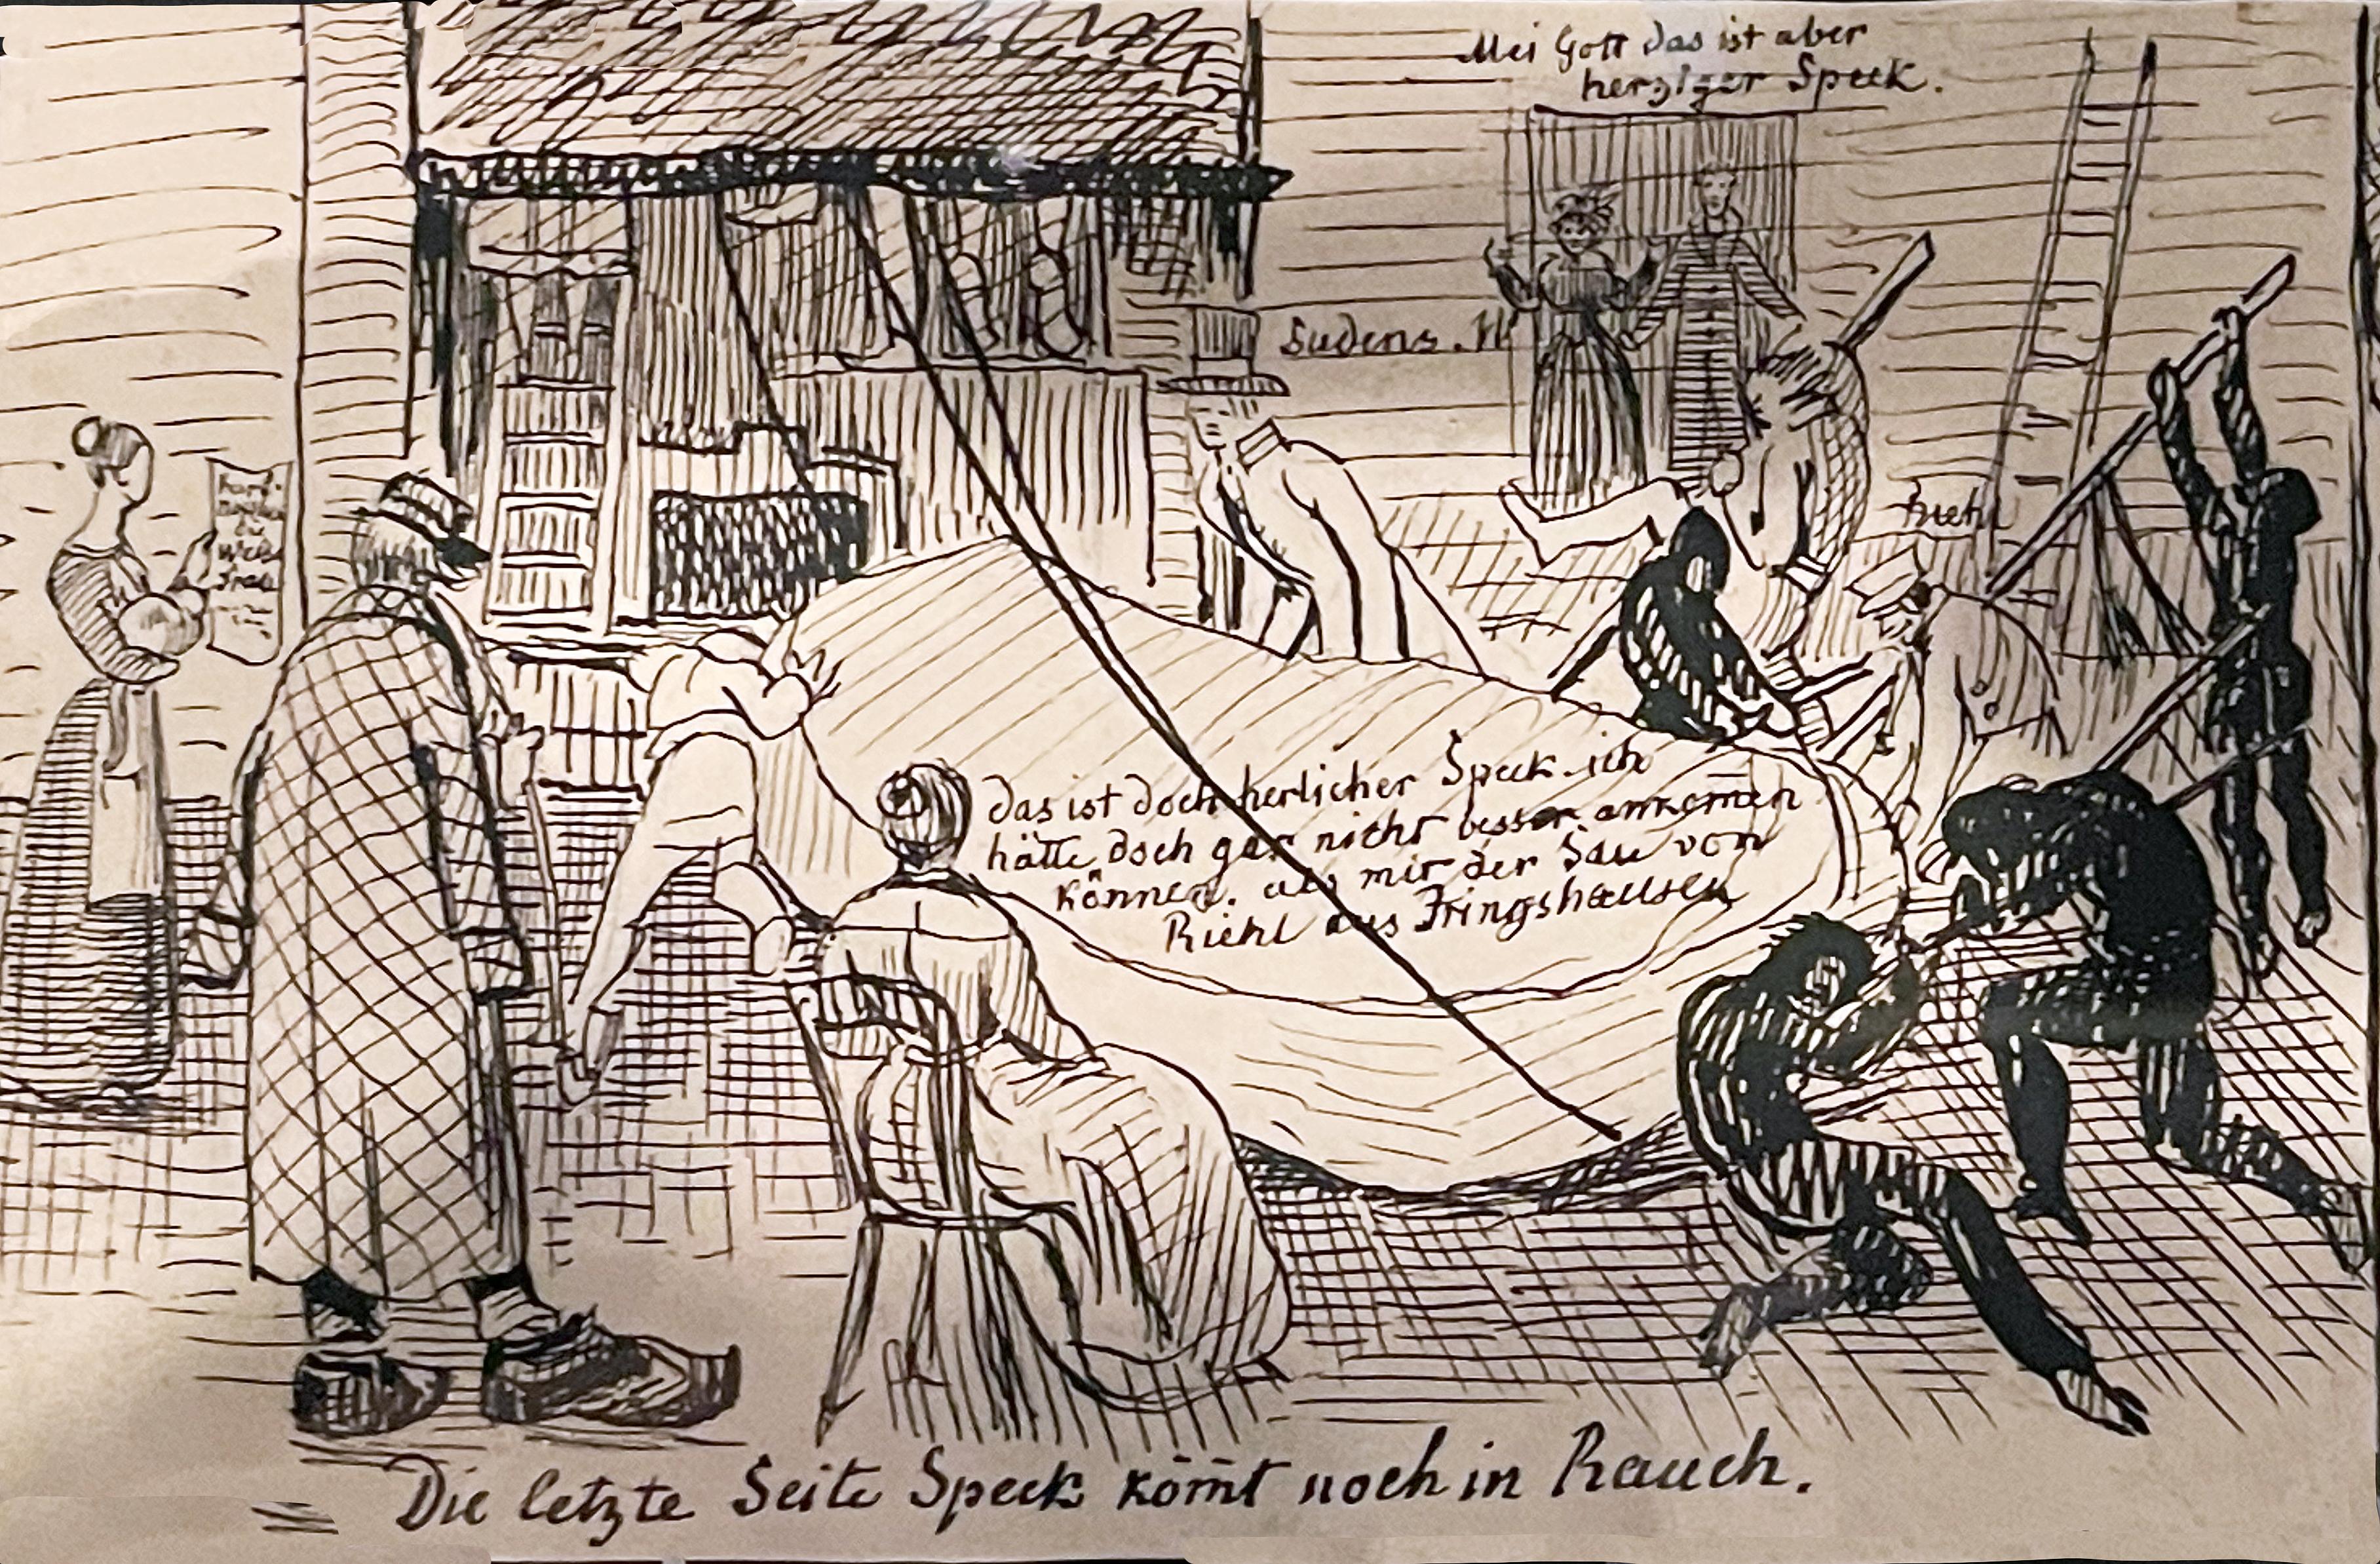 Mei Gott das ist aber
herziger Speck.
das ist doch herlicher Speck. ich
hätte doch gar nicht besser ankom̅en
können. als mit der Sau von
Riehl aus Fringshausen
Die letzte Seite Speck kom̅t noch in Rauch.